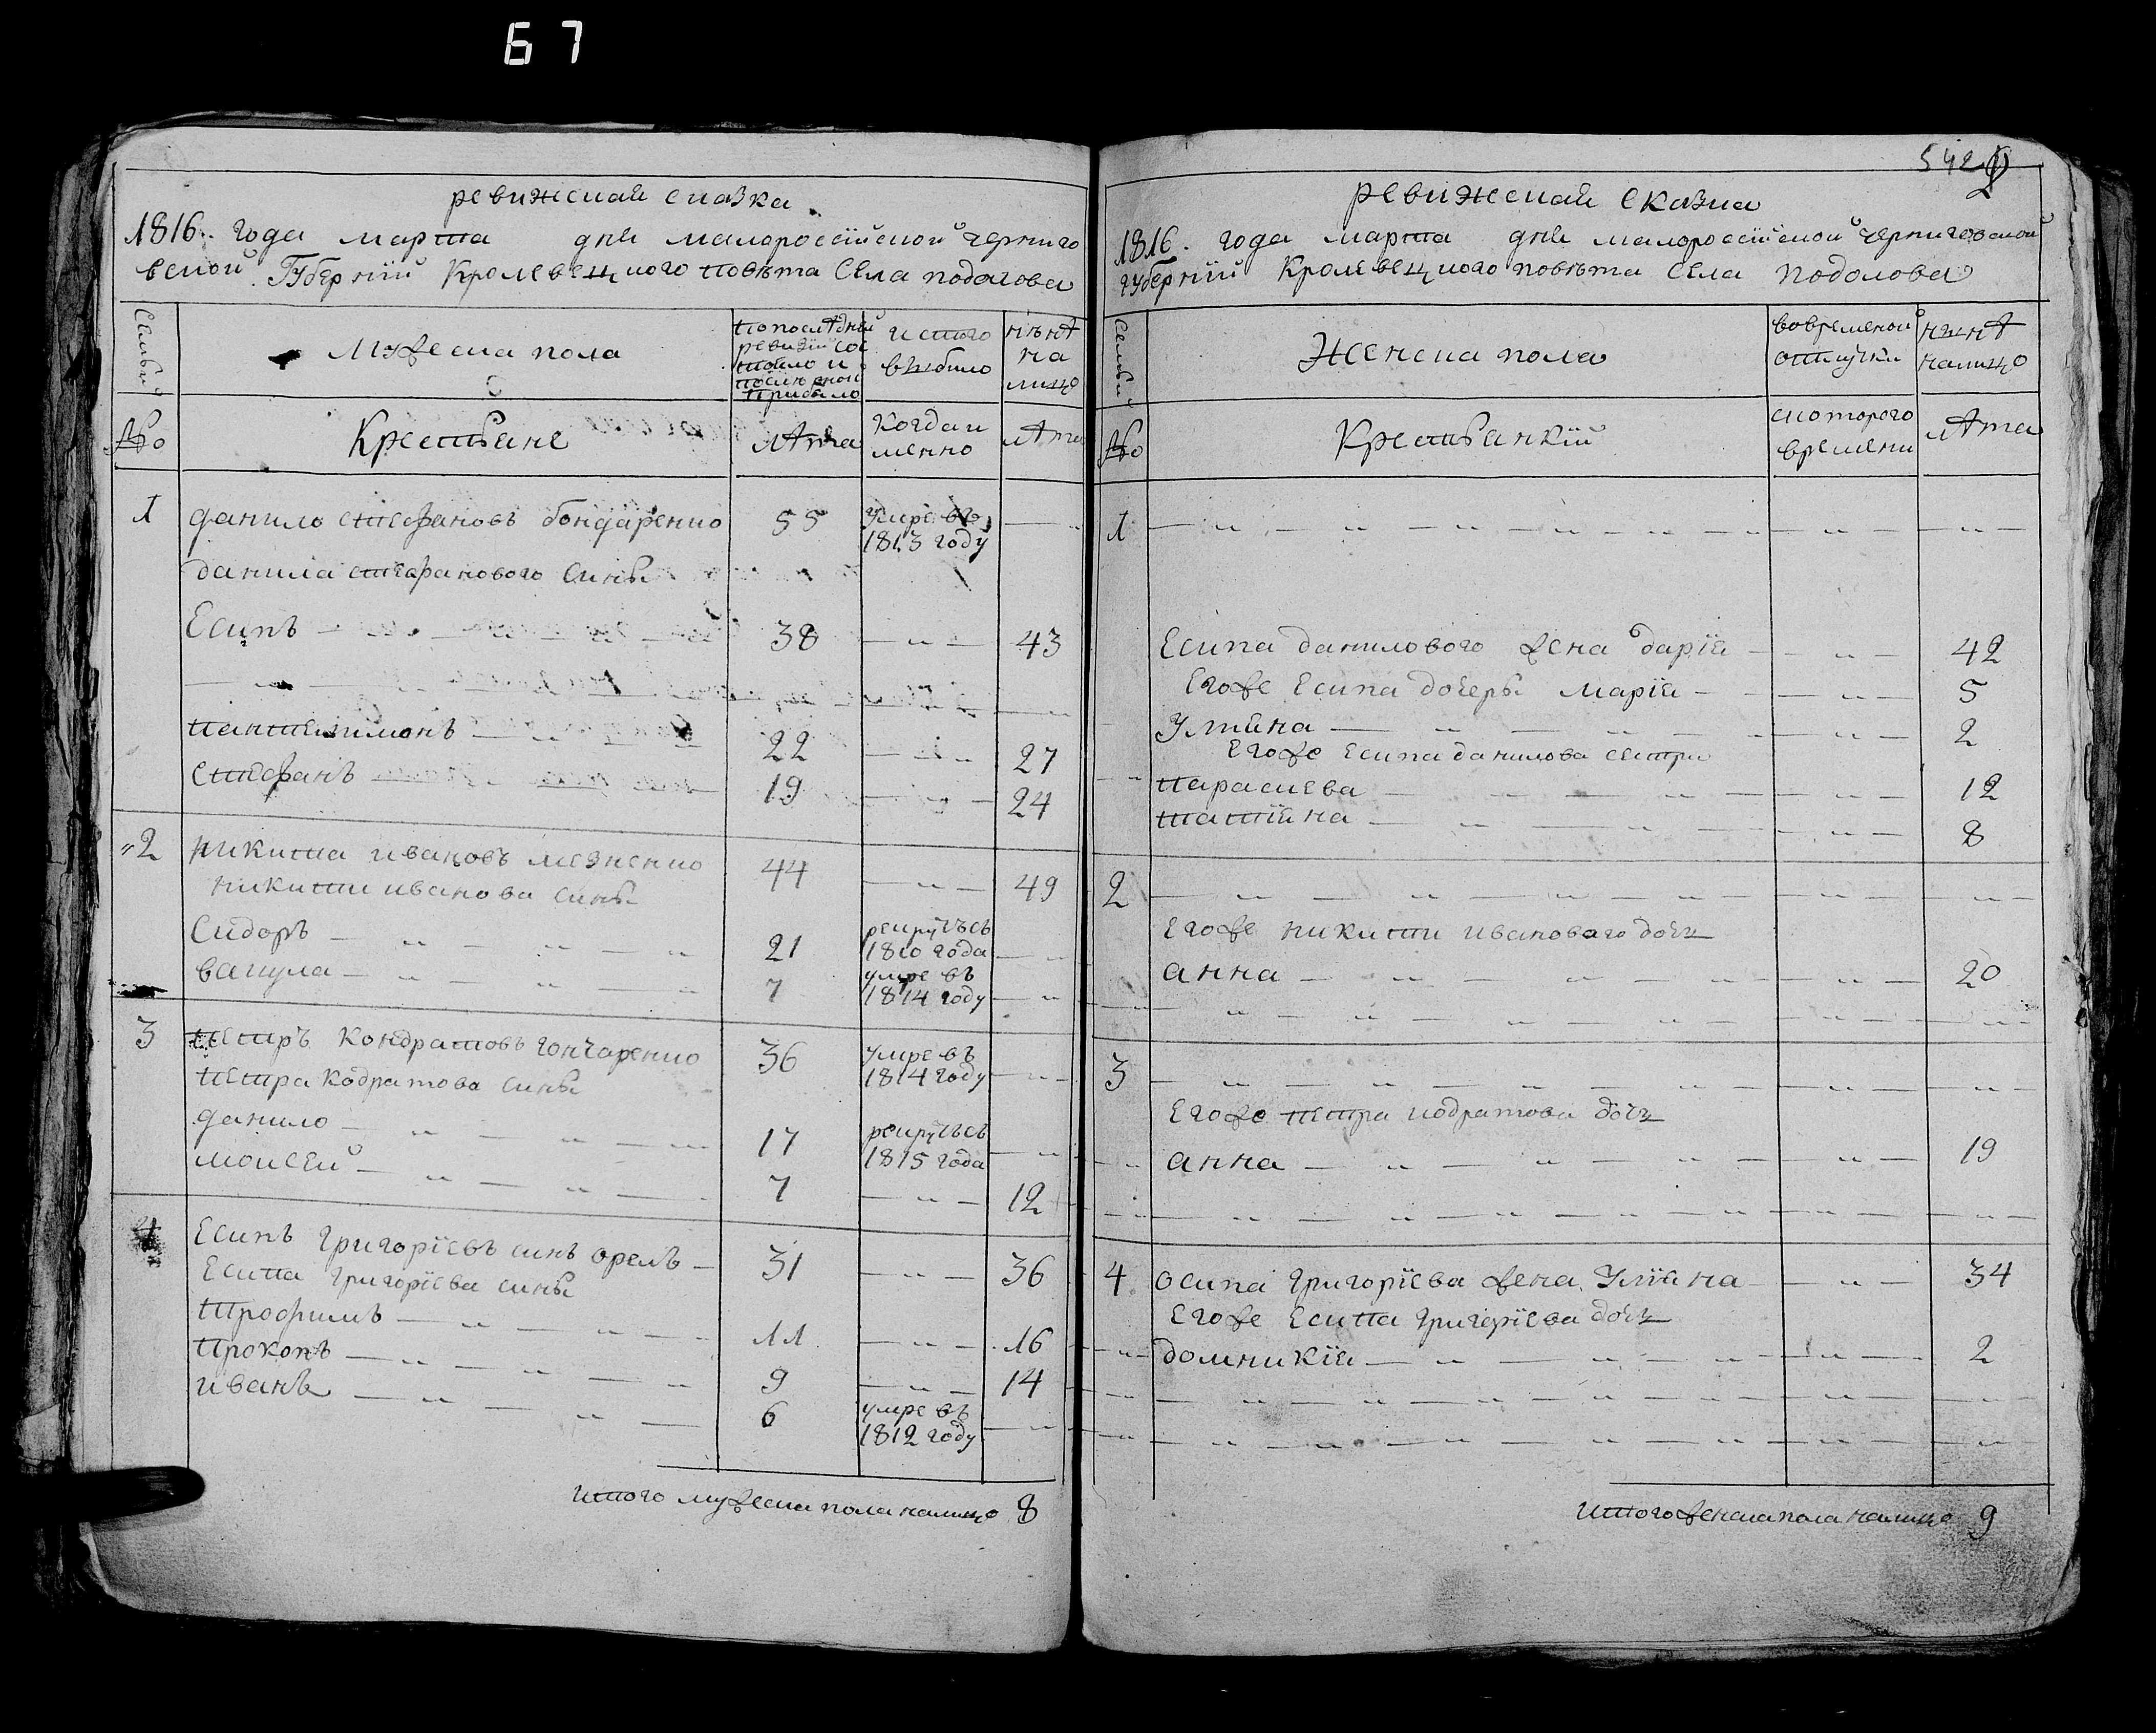 67
ревижская сказка
1816. года марта дня малороссійской черниго
вской Губерніи Кролевецкого повѣта Села подолова
Семьи
Мужеска пола
по последней
ревизіи сос
тояло и
после оной
прибыло
и стого
выбило
нынѣ
на
лицо
№
Крестьяне
лѣта
Когда и
менно
лѣта
1 данило стефановъ бондаренко 55 умре въ
1813 году
данила стефанового сины
Есипъ 38 43
пантелимонъ 22 27
стефанъ 19 24
2 никита ивановъ мезненко 44 49
никити иванова сины
Сидоръ 21 рекрутъсь
1810 года
вакула 7 умре въ
1814 году
3 петръ Кондратовъ гончаренко 36 умре въ
1814 году
петра Кодратова сины
данило 17 рекрутъсь
1815 года
моисей 7 12
4 Есипъ григоріевъ синъ орелъ 31 36
Есипа григоріева сины
трофимъ 11 16
прокопъ 9 14
иванъ 6 умре въ
1812 году
итого мужеска пола налицо 8
542
2
ревижская сказка
1816. года марта дня малороссійской черниговской
губерніи Кролевецкого повѣта села подолова
Семьи
Женска пола
вовременой
отлучки
нынѣ
налицо
№
Крестьянкій
скоторого
времени
лѣта
1
Есипа данилового жена дарія 42
Егоже Есипа дочеры марія 5
Уліяна 2
Егоже Есипа данилова сестри
параскева 12
татіяна 8
2
Егоже никити иванового дочъ
анна 20
3
Егоже петра кодратова дочъ
анна 19
4 осипа григоріева жена Уліяна 34
Егоже Есипа григоріева дочъ
домникія 2
итого женска пола налицо 9